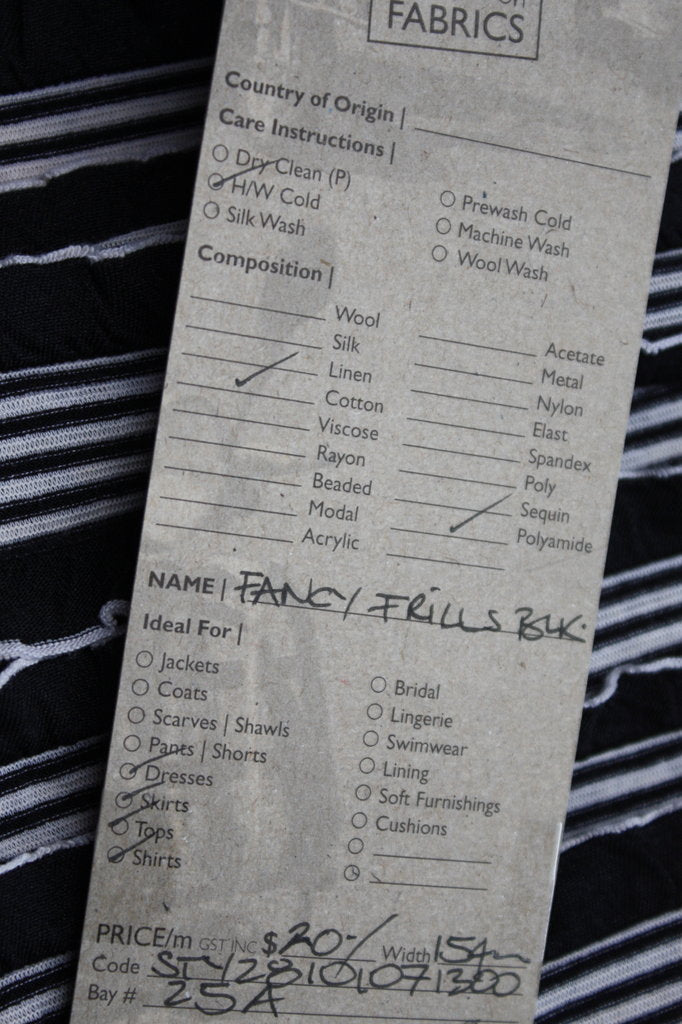 FABRICS
Country of Origin |
Care Instructions |
Dry Clean (P)
H/W Cold
Silk Wash
Prewash Cold
Machine Wash
Wool Wash
Composition |
Wool
Silk
Linen
Cotton
Viscose
Rayon
Beaded
Modal
Acrylic
Acetate
Metal
Nylon
Elast
Spandex
Poly
Sequin
Polyamide
NAME | FANCY FRILLS BLK.
Ideal For |
Jackets
Coats
Scarves | Shawls
Pants | Shorts
Dresses
Skirts
Tops
Shirts
Bridal
Lingerie
Swimwear
Lining
Soft Furnishings
Cushions
PRICE/m GST INC $20-/ Width 154m
Code ST/28101071300
Bay # 25A